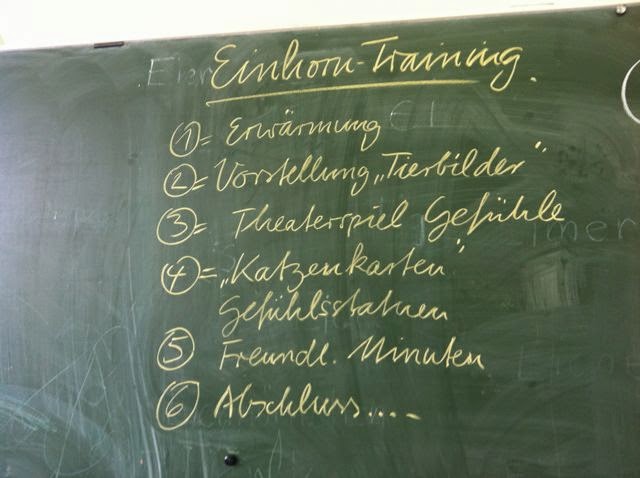 Einhorn-Training.
① = Erwärmung
② = Vorstellung „Tierbilder"
③ = Theaterspiel Gefühle
④ = „Katzenkarten"
Gefühlsstatuen
⑤ Freundl. Minuten
⑥ Abschluss....